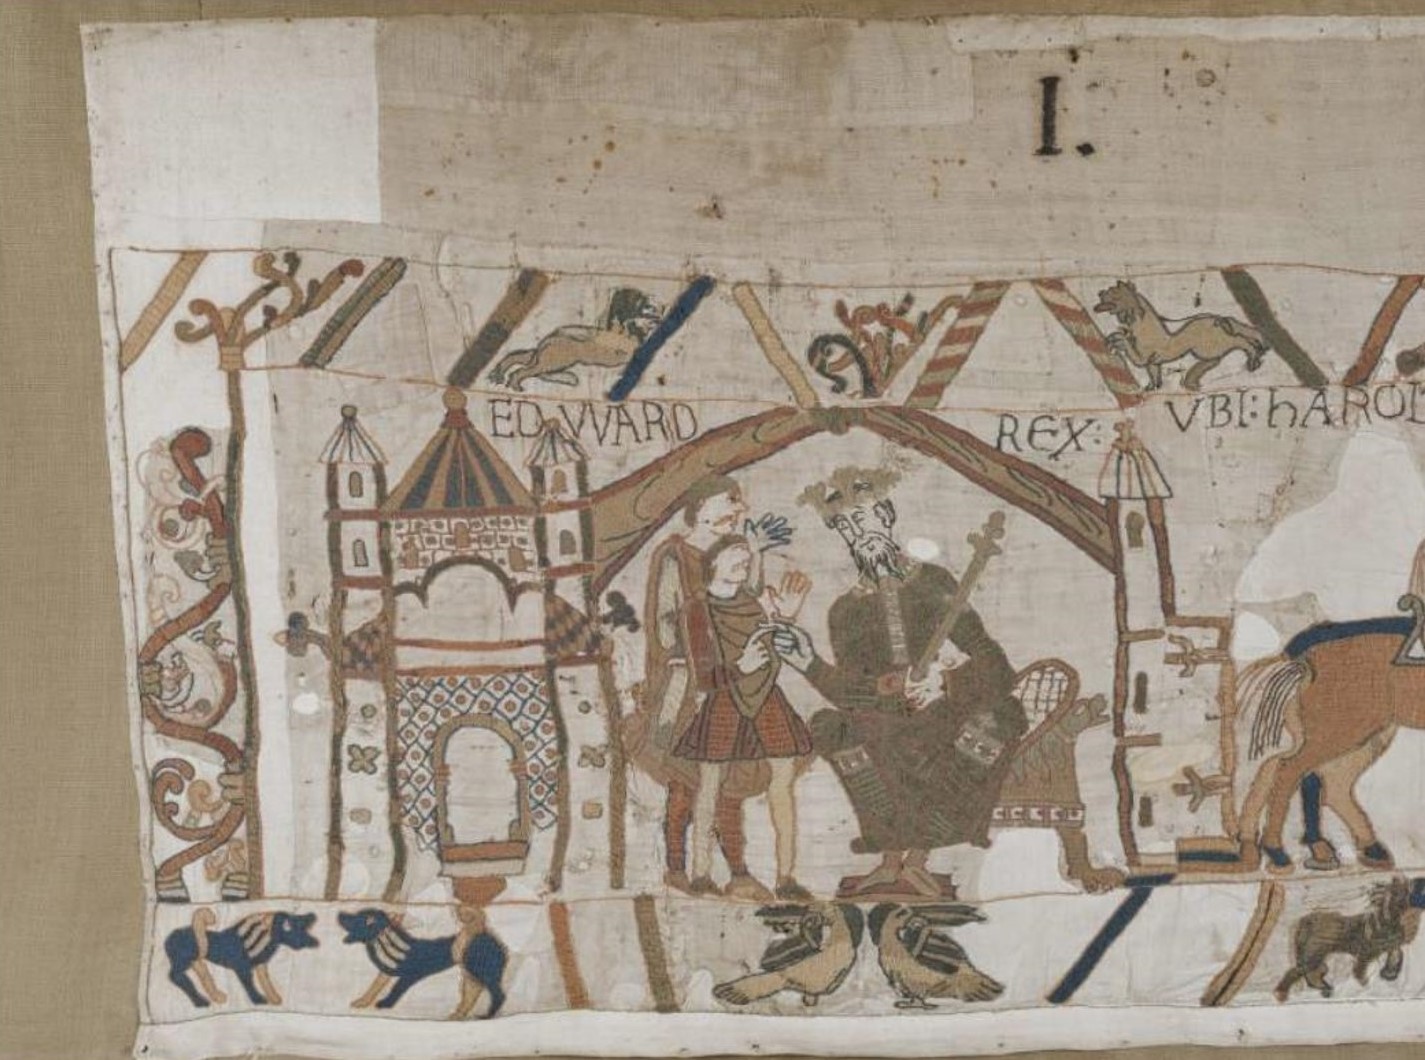 I.
EDVVARD REX: VBI: hAROL